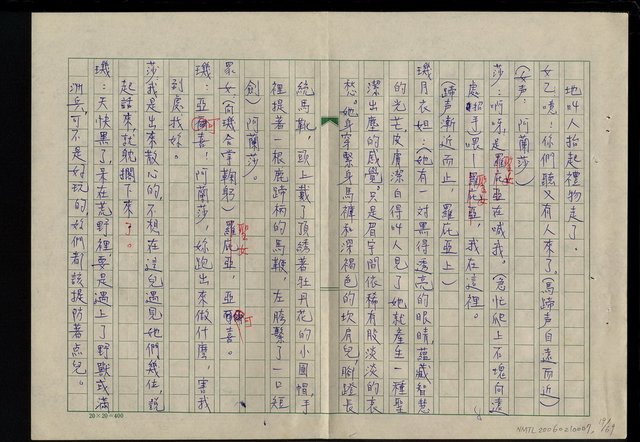 地叫人抬起禮物走了。
女乙唬：你們聽又有人來了。(馬蹄声自遠而近)
(女声：阿蘭莎)
莎：啊呀，是聖女羅庇亞在喊我。(急忙爬上石塊向遠
處招手)喂！聖女羅庇亞，我在這裡。
(蹄声漸近而止，羅庇亞上)
璣月衣妲：(她有一对黑得透亮的眼睛，蘊藏智慧
的光芒皮膚潔白得叫人見了她就產生一種聖
潔出塵的感覺。只是眉宇間依稀有股淡淡的哀
愁。她身穿緊身馬褲和深褐色的坎肩兒，脚蹬長
統馬靴，頭上戴了頂綉著牡丹花的小圓帽，手
裡提著一根鹿蹄柄的馬鞭，左胯繫了一口短
劍)阿蘭莎。
眾女(向璣合字鞠躬)聖女羅庇亞，亞可喜。
璣：亞可喜！阿蘭莎，妳跑出來做什麼，害我
到處找妳。
莎：我是出來散心的，不想在這兒遇見她們幾位，說
起話來，就躭擱下來了。
璣：天快黑了，呆在荒野裡，要是遇上了野獸或滿
洲兵，可不是好玩的，妳們都該提防著点兒。
20×20=400
NMTL20060210007
19/69